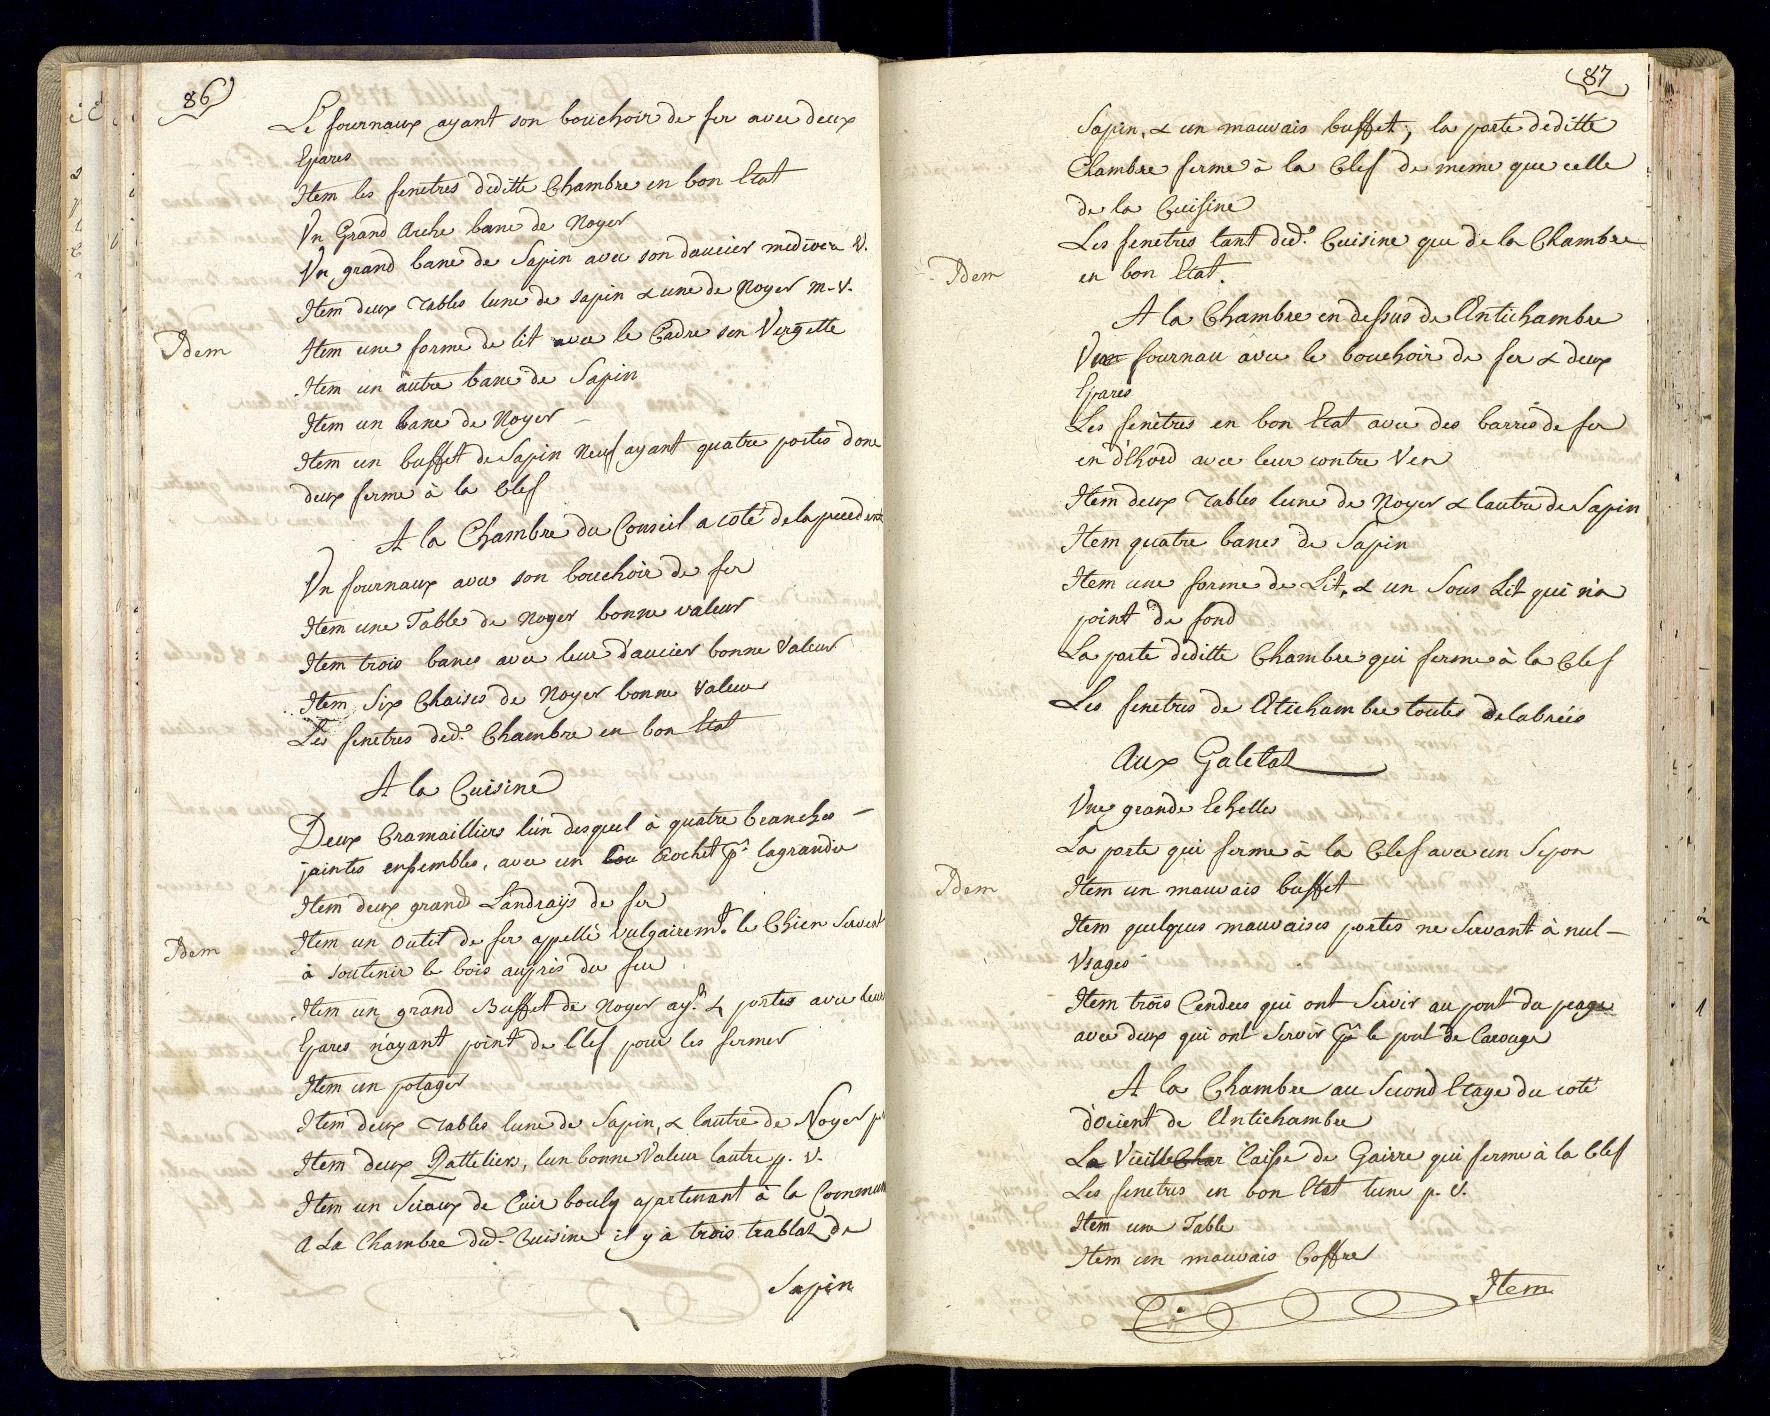 86
Le fournaux ayant son bouchoir de fer avec deux
Epares
Item les fenetres deditte Chambre en bon Etat
Un Grand Arche banc de Noyer
Un grand banc de Sapin avec son daucier mediocre V.
Item deux Tables lune de sapin & une de Noyer m. v.
Idem
Item une forme de lit avec le Cadre sen Vergette
Item un autre banc de Sapin
Item un banc de Noyer
Item un buffet de Sapin Neuf ayant quatre portes donc
deux ferme à la Clef
A la Chambre du Conseil a coté de la precedente
Un fournaux avec son bouchoir de fer
Item une Table de Noyer bonne valeur
Item trois bancs avec leur daucier bonne Valeur
Item Six Chaises de Noyer bonne Valeur
Les fenetres ded.e Chambre en bon Etat
A la Cuisine
Deux Cramailliers lun desquel à quatre branches
jointes ensembles, avec un Crochet p.r lagrandir
Item deux grand Landraijs de fer
Item un outil de fer appellé vulgairem.t le Chien Servant
Idem
à soutenir le bois aupris du feu
Item un grand Buffet de Noyer ay.t 4 portes avec leurs
Epares n'ayant point de Clef pour les fermer
Item un potager
Item deux Tables lune de Sapin, & lautre de Noyer
Item deux Ratteliers, lun bonne Valeur lautre p. V.
Item un Siaux de Cuir bouly apartenant à la Commune
A La Chambre dud.e Cuisine il y à trois trablat de
Sapin
87
Sapin, & un mauvais buffet, la porte deditte
Chambre ferme à la Clef de meme que celle
de la Cuisine
Les fenetres tant ded.e Cuisine que de la Chambre
Idem
en bon Etat.
A la Chambre en dessus de lAntichambre
Un fournau avec le bouchoir de fer & deux
Epares
Les fenetres en bon Etat avec des barres de fer
en d'hord avec leur contre Ven
Item deux Tables lune de Noyer & lautre de Sapin
Item quatre bancs de Sapin
Item une forme de Lit, & un Sous Lit qui n'a
point de fond
La porte deditte Chambre qui ferme à la Clef
Les fenetres de lAtichambre toutes delabrées
Aux Galetat
Une grande Echelle
La porte qui ferme à la Clef avec un Sepon
Idem
Item un mauvais buffet
Item quelques mauvaises portes ne Servant à nul
Usages
Item trois Cendres qui ont Servir au pont du peage
avec deux qui ont Servir p.r le pont de Carouge
A la Chambre au Second Etage du coté
d'orient de lAntichambre
La Vieille Caisse de Gairre qui ferme à la Clef
Les fenetres en bon Etat lune p. V.
Item une Table
Item un mauvais Coffre
Item